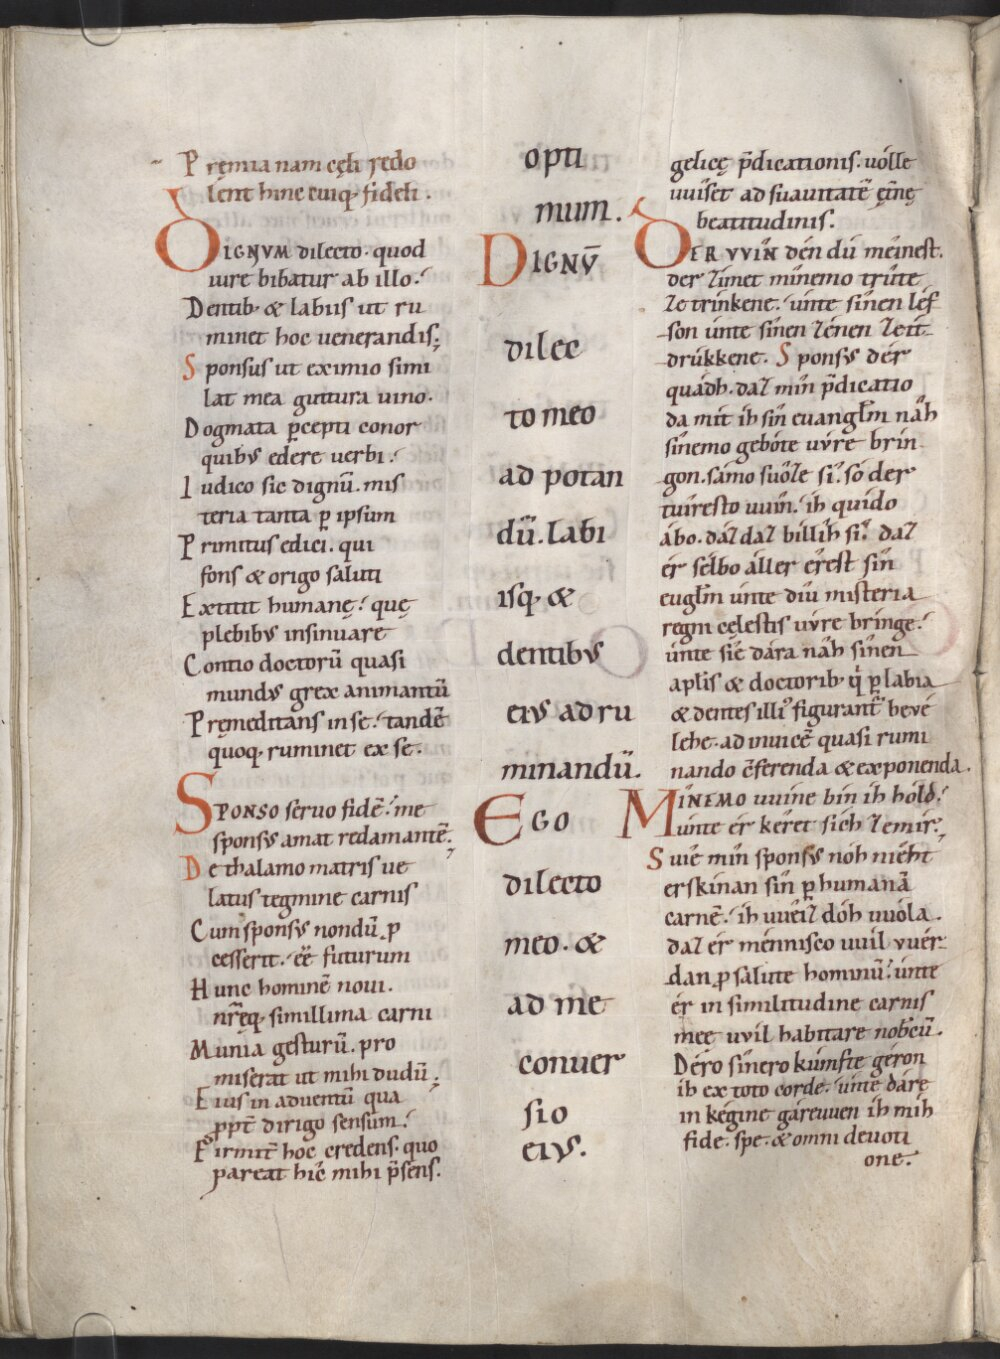 Pręmia nam cęli redo
lent hinc cuiq; fideli.
DIGNVM dilecto. quod
iure bibatur ab illo.
Dentib; & labiis ut ru
minet hoc uenerandis;
Sponsus ut eximio simi
lat mea guttura uino.
Dogmata p̄cepti conor
quibus edere uerbi.
Iudico sic dignū. mis
teria tanta p̄ ipsum
Primitus edici. qui
fons & origo saluti
Extitit humanę. quę
plebibus insinuare
Contio doctorū quasi
mundus grex animantū
Pręmeditans in se. tandē
quoq; ruminet ex se.
SPONSO seruo fidē. me
sponsus amat redamantē;
De thalamo matris ue
latus tegmine carnis
Cum sponsus nondū p
cesserit. eē futurum
Hunc hominē noui.
nr̄ęq; simillima carni
Munia gesturū. pro
miserat ut mihi dudū;
Eius in aduentū qua
ppt̄ dirigo sensum.
Firmit̄ hoc credens. quo
pareat hic mihi p̄sens.
opti
mum.
DIGNV̄
dilec
to meo
ad potan
dū. labi
isq; &
dentibus
eius ad ru
minandū.
EGO
dilecto
meo. &
ad me
conuer
sio
eius.
gelicę p̄dicationis. uólle
uuíset ad suauitatē ęt̄nę
beatitudinis.
DER VVÍN dén dú méinest.
der zímet mínemo trûte
ze trínkene. únte sînen léf
son únte sînen zénen ze it
drúkkene. Sponsus dér
quádh. daz mîn p̄dicatio
da mít ih sîn euangl̄m nâh
sînemo gebóte vure brin
gon. sámo suôze sî. só der
tuíresto uuîn. ih quído
ábo. dáz daz billîh sî. daz
ér sélbo áller êrest sîn
eugl̄m únte díu misteria
regni cęlestis vure brínge.
únte sie dára nâh sînen
apl̄is & doctorib; q̇ p̄ labia
& dentes illi figurant̄ beué
lehe. ad inuicē quasi rumi
nando c̄ferenda & exponenda.
MÍNEMO uuine bín ih hóld.
únte ér kéret sích ze mir;
Suíe mîn sponsus nóh níeht
erskínan sîn p̄ humanā
carnē. íh uuéiz dóh uuóla.
daz ér ménnisco uuil vuér
dan p salute hominū. únte
ér in similitudine carnis
mee uuil habitare nob̄cū.
Déro sînero kúmfte géron
ih ex toto corde. únte dárę
in kégine gáreuuen ih mih
fide. spe. & omni deuoti
one.